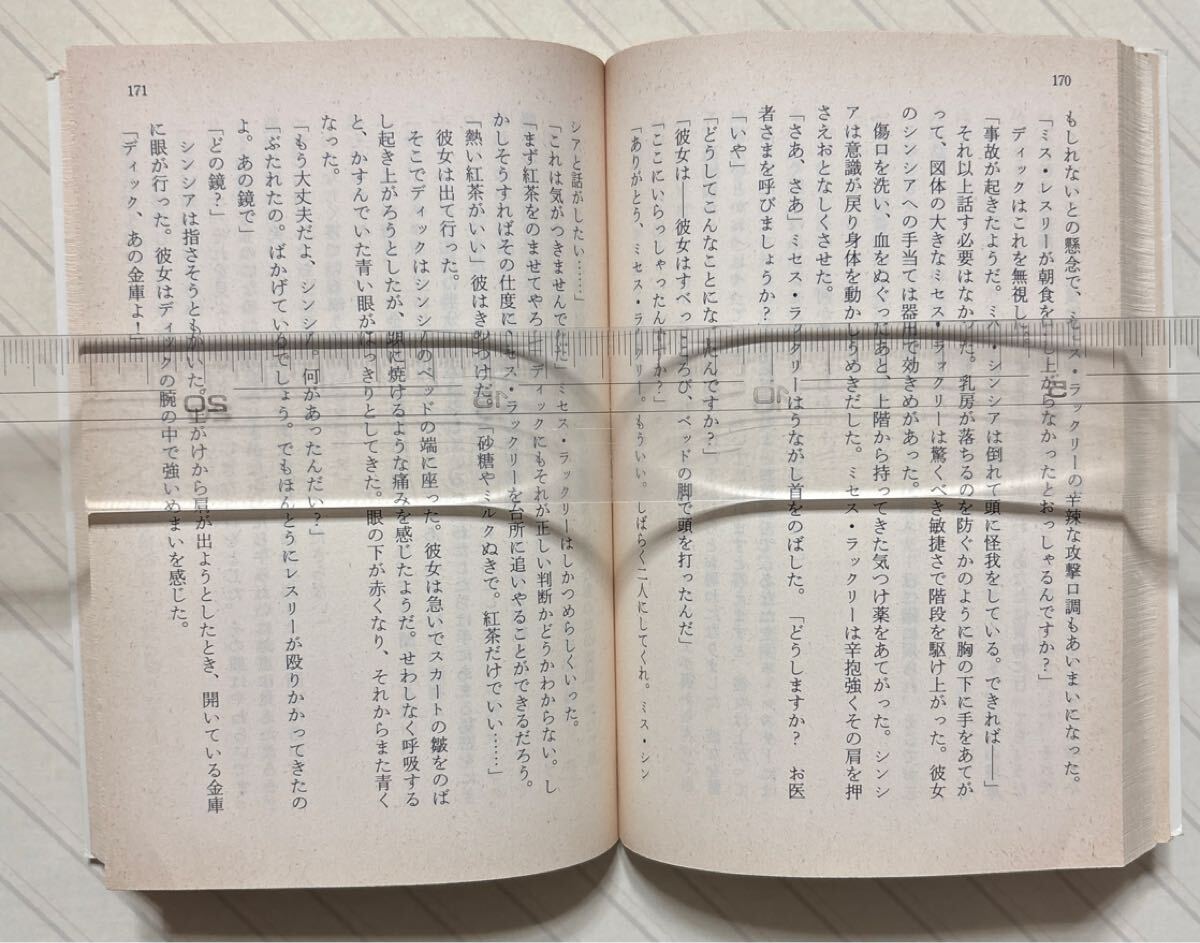 170
もしれないとの懸念で、ミセス・ラックリーの辛辣な攻撃口調もあいまいになった。
「ミス・レスリーが朝食を召し上がらなかったとおっしゃるんですか?」
ディックはこれを無視した。
「事故が起きたようだ。ミス・シンシアは倒れて頭に怪我をしている。できれば——」
それ以上話す必要はなかった。乳房が落ちるのを防ぐかのように胸の下に手をあてが
って、図体の大きなミセス・ラックリーは驚くべき敏捷さで階段を駆け上がった。彼女
のシンシアへの手当ては器用で効きめがあった。
傷口を洗い、血をぬぐったあと、上階から持ってきた気つけ薬をあてがった。シンシ
アは意識が戻り身体を動かしうめきだした。ミセス・ラックリーは辛抱強くその肩を押
さえおとなしくさせた。
「さあ、さあ」ミセス・ラックリーはうながし首をのばした。「どうしますか? お医
者さまを呼びましょうか?」
「いや」
「どうしてこんなことになったんですか?」
「彼女は——彼女はすべってころび、ベッドの脚で頭を打ったんだ」
「ここにいらっしゃったんですか?」
「ありがとう、ミセス・ラックリー。もういい。しばらく二人にしてくれ。ミス・シン
171
シアと話がしたい……」
「これは気がつきませんでした」ミセス・ラックリーはしかつめらしくいった。
「まず紅茶をのませてやろう」ディックにもそれが正しい判断かどうかわからない。し
かしそうすればその仕度にミセス・ラックリーを台所に追いやることができるだろう。
「熱い紅茶がいい」彼はきめつけた。「砂糖やミルクぬきで。紅茶だけでいい……」
彼女は出て行った。
そこでディックはシンシアのベッドの端に座った。彼女は急いでスカートの皺をのば
し起き上がろうとしたが、頭に焼けるような痛みを感じたようだ。せわしなく呼吸する
と、かすんでいた青い眼がはっきりとしてきた。眼の下が赤くなり、それからまた青く
なった。
「もう大丈夫だよ、シンシア。何があったんだい?」
「ぶたれたの。ばかげているでしょう。でもほんとうにレスリーが殴りかかってきたの
よ。あの鏡で」
「どの鏡?」
シンシアは指さそうともがいた。上がけから肩が出ようとしたとき、開いている金庫
に眼が行った。彼女はディックの腕の中で強いめまいを感じた。
「ディック、あの金庫よ!」
5
10
15
20